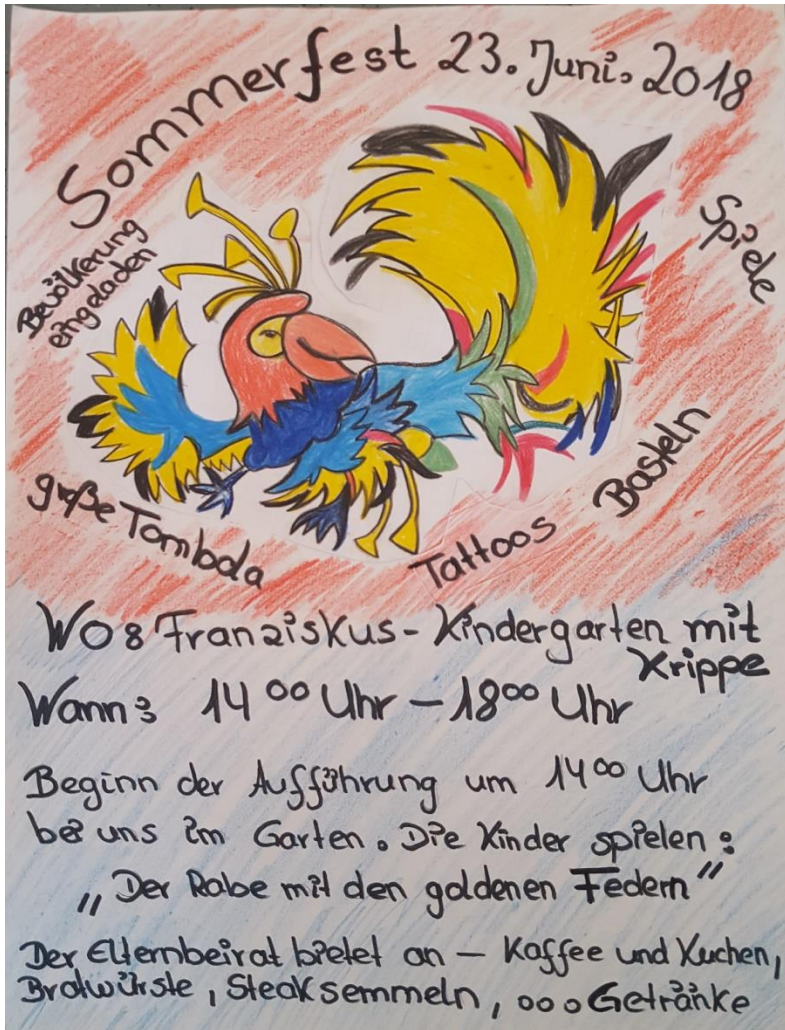 Sommerfest 23. Juni. 2018
Bevölkerung
eingeladen
Spiele
große Tombola
Tattoos
Basteln
Wo: Franziskus - Kindergarten mit
Krippe
Wann: 14 00 Uhr - 18 00 Uhr
Beginn der Aufführung um 14 00 Uhr
bei uns im Garten. Die Kinder spielen:
„Der Rabe mit den goldenen Federn"
Der Elternbeirat bietet an - Kaffee und Kuchen,
Bratwürste, Steaksemmeln, ... Getränke